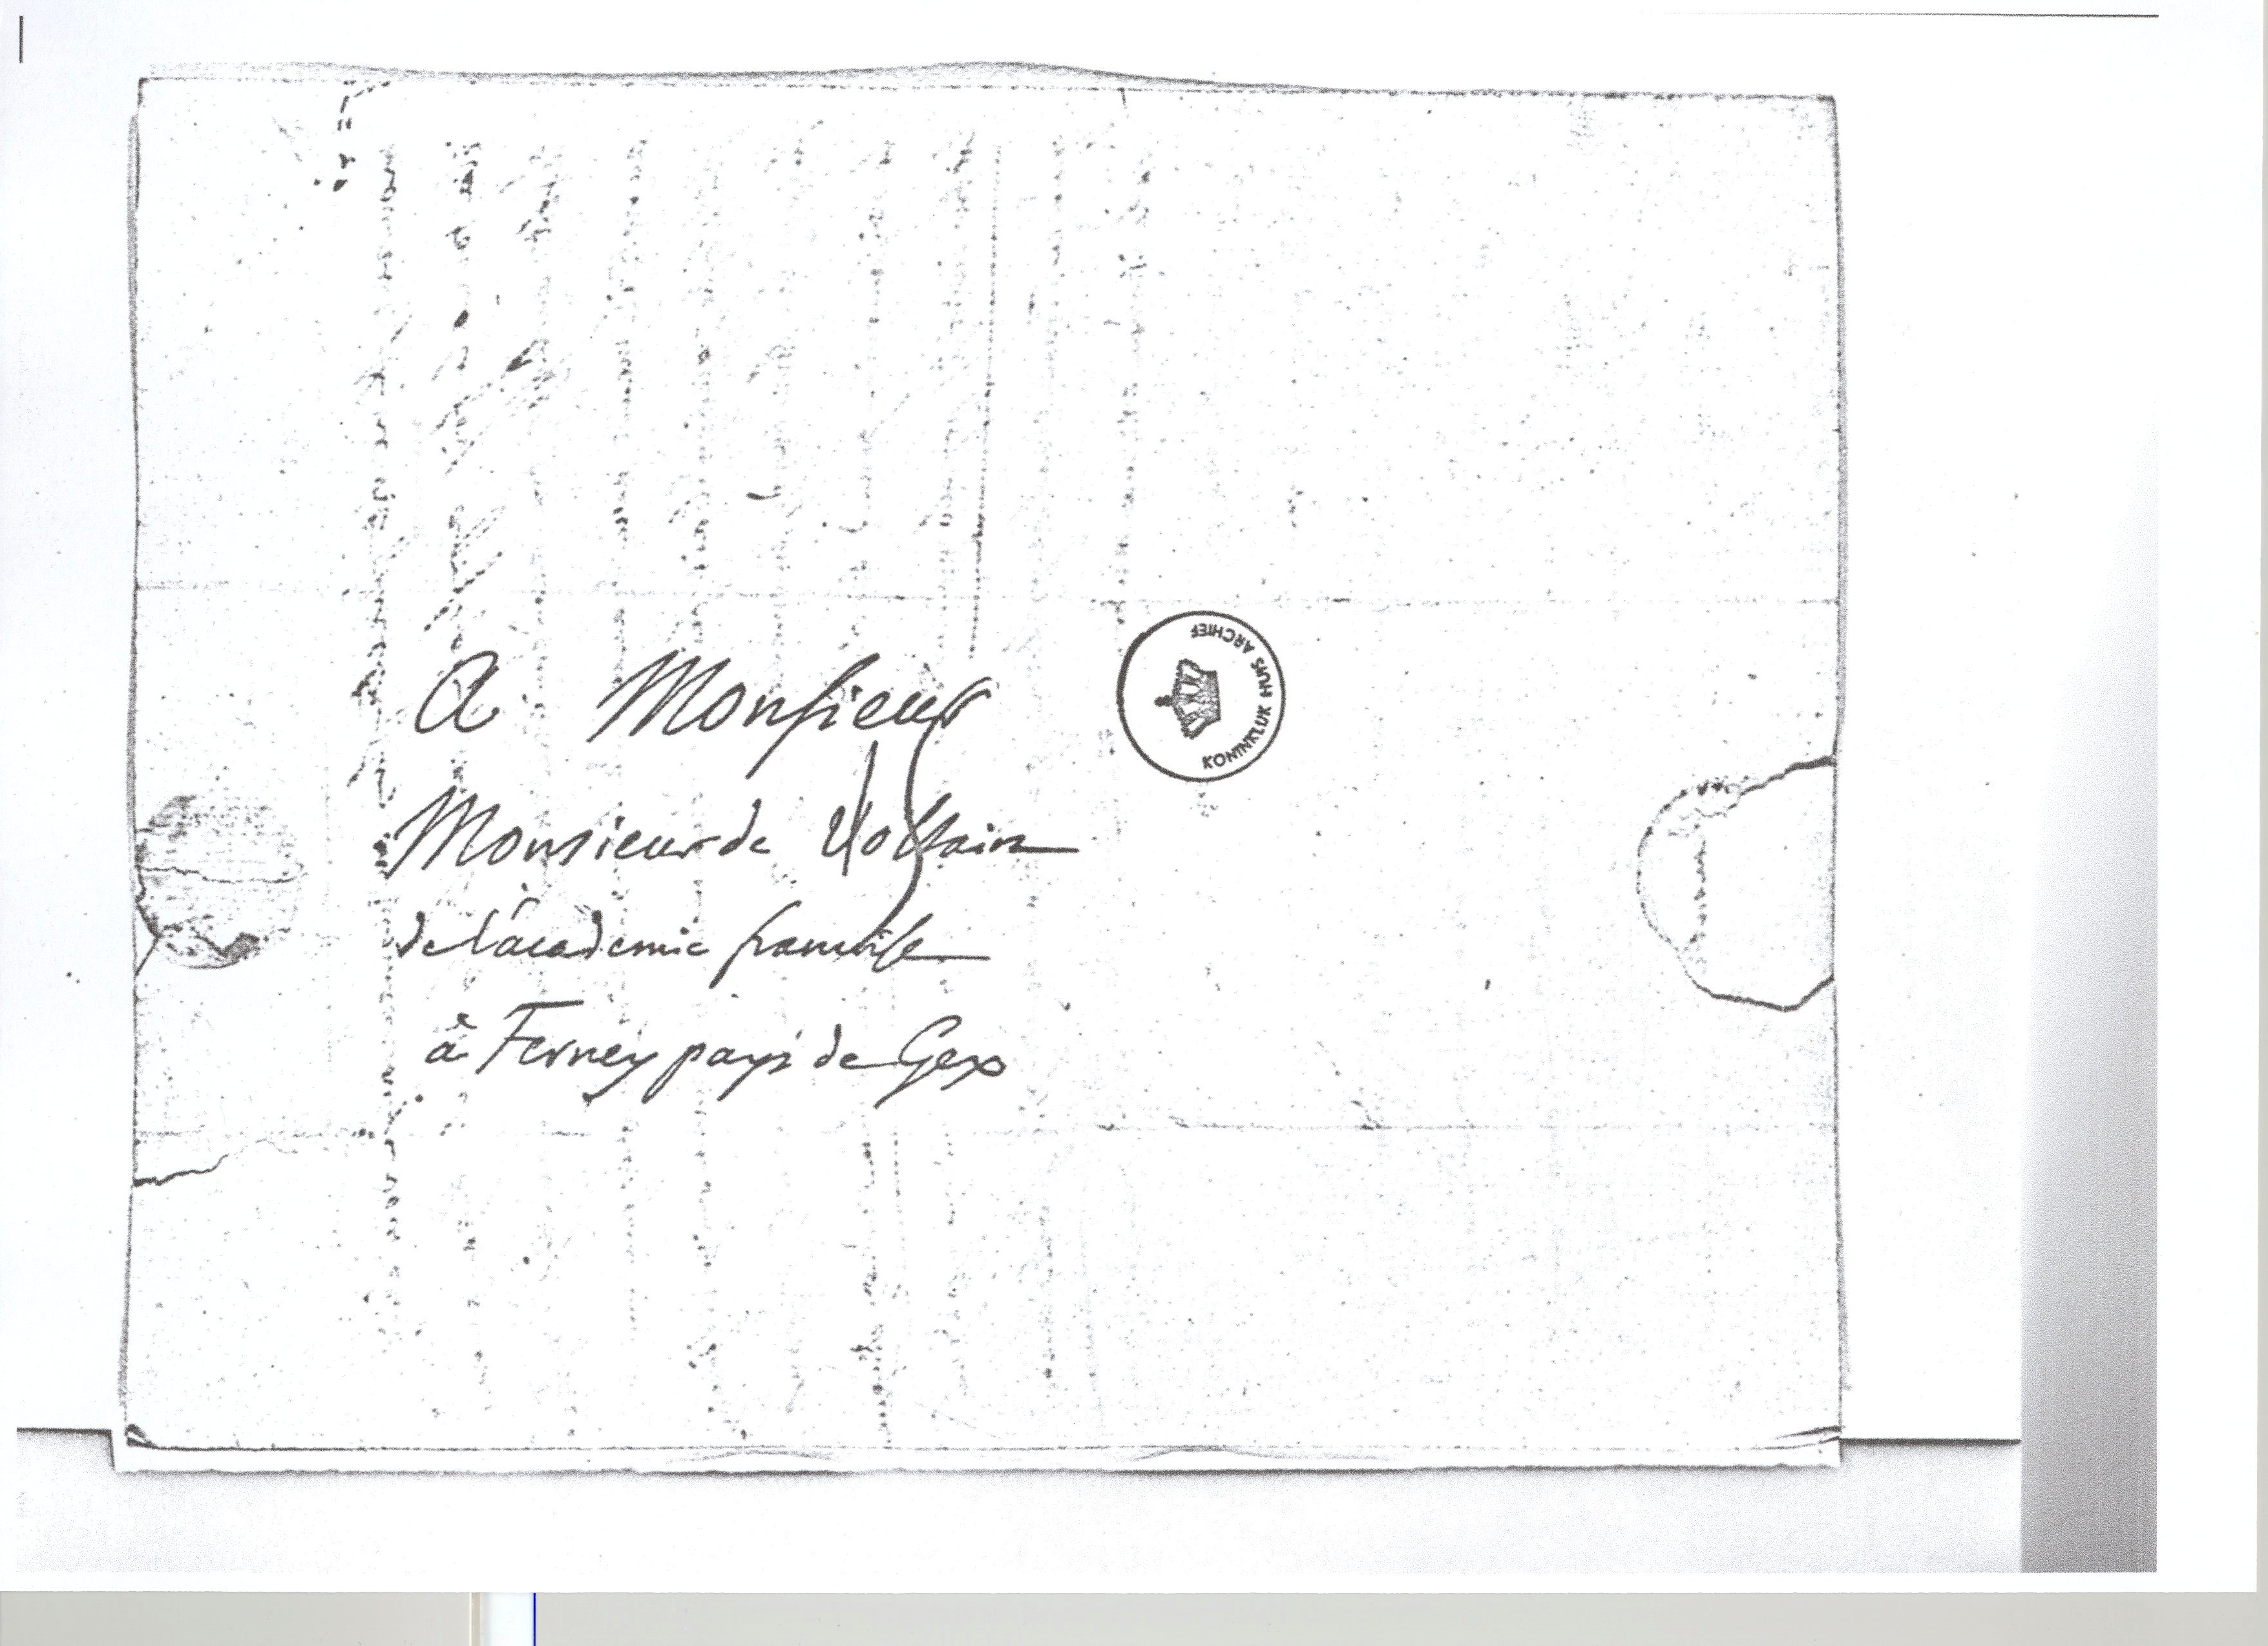 A Monsieur
Monsieur de Voltaire
de l'academie francoise
à Ferney pays de Gex
KONINKLIJK HUIS ARCHIEF